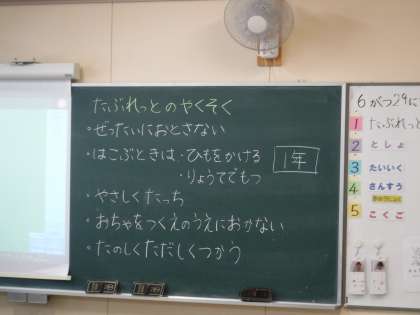 たぶれっとのやくそく
・ぜったいにおとさない
・はこぶときは・ひもをかける
・りょうてでもつ
1年
・やさしくたっち
・おちゃをつくえのうえにおかない
・たのしくただしくつかう
6がつ29に
1 たぶれっ
2 としょ
3 たいいく
4 さんすう
5 こくご